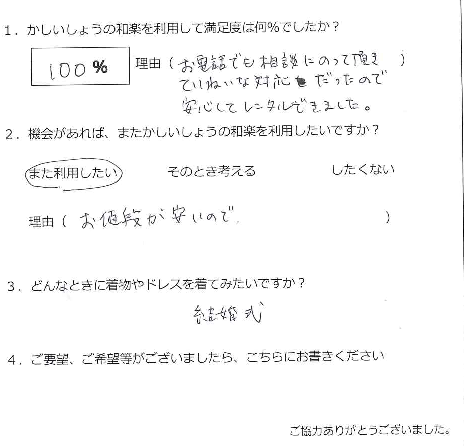 1．かしいしょうの和楽を利用して満足度は何%でしたか？
100% 理由（お電話でも相談にのって頂き）
ていねいな対応だったので
安心してレンタルできました。
2．機会があれば、またかしいしょうの和楽を利用したいですか？
また利用したい そのとき考える したくない
理由（お値段が安いので）
3．どんなときに着物やドレスを着てみたいですか？
結婚式
4．ご要望、ご希望等がございましたら、こちらにお書きください
ご協力ありがとうございました。